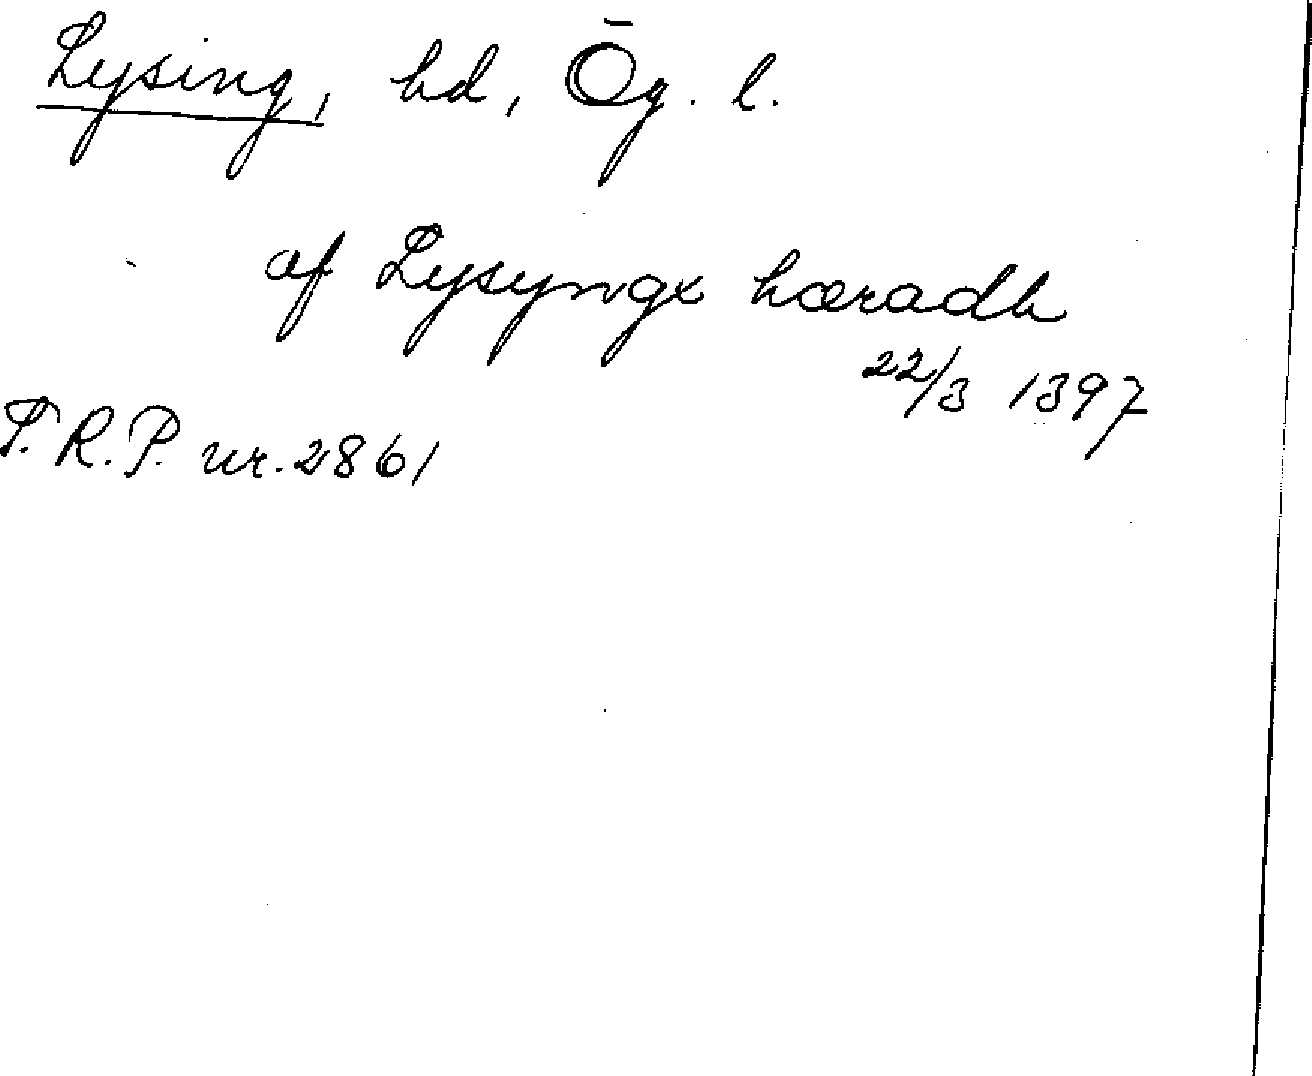 Lysing, hd, Ög. l.
af Lysyngx hæradh
22/3 1397
P.R.P. nr. 2861